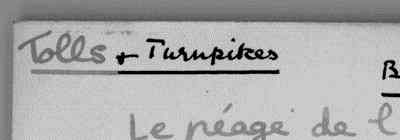 Tolls + Turnpikes
B
Le péage de l